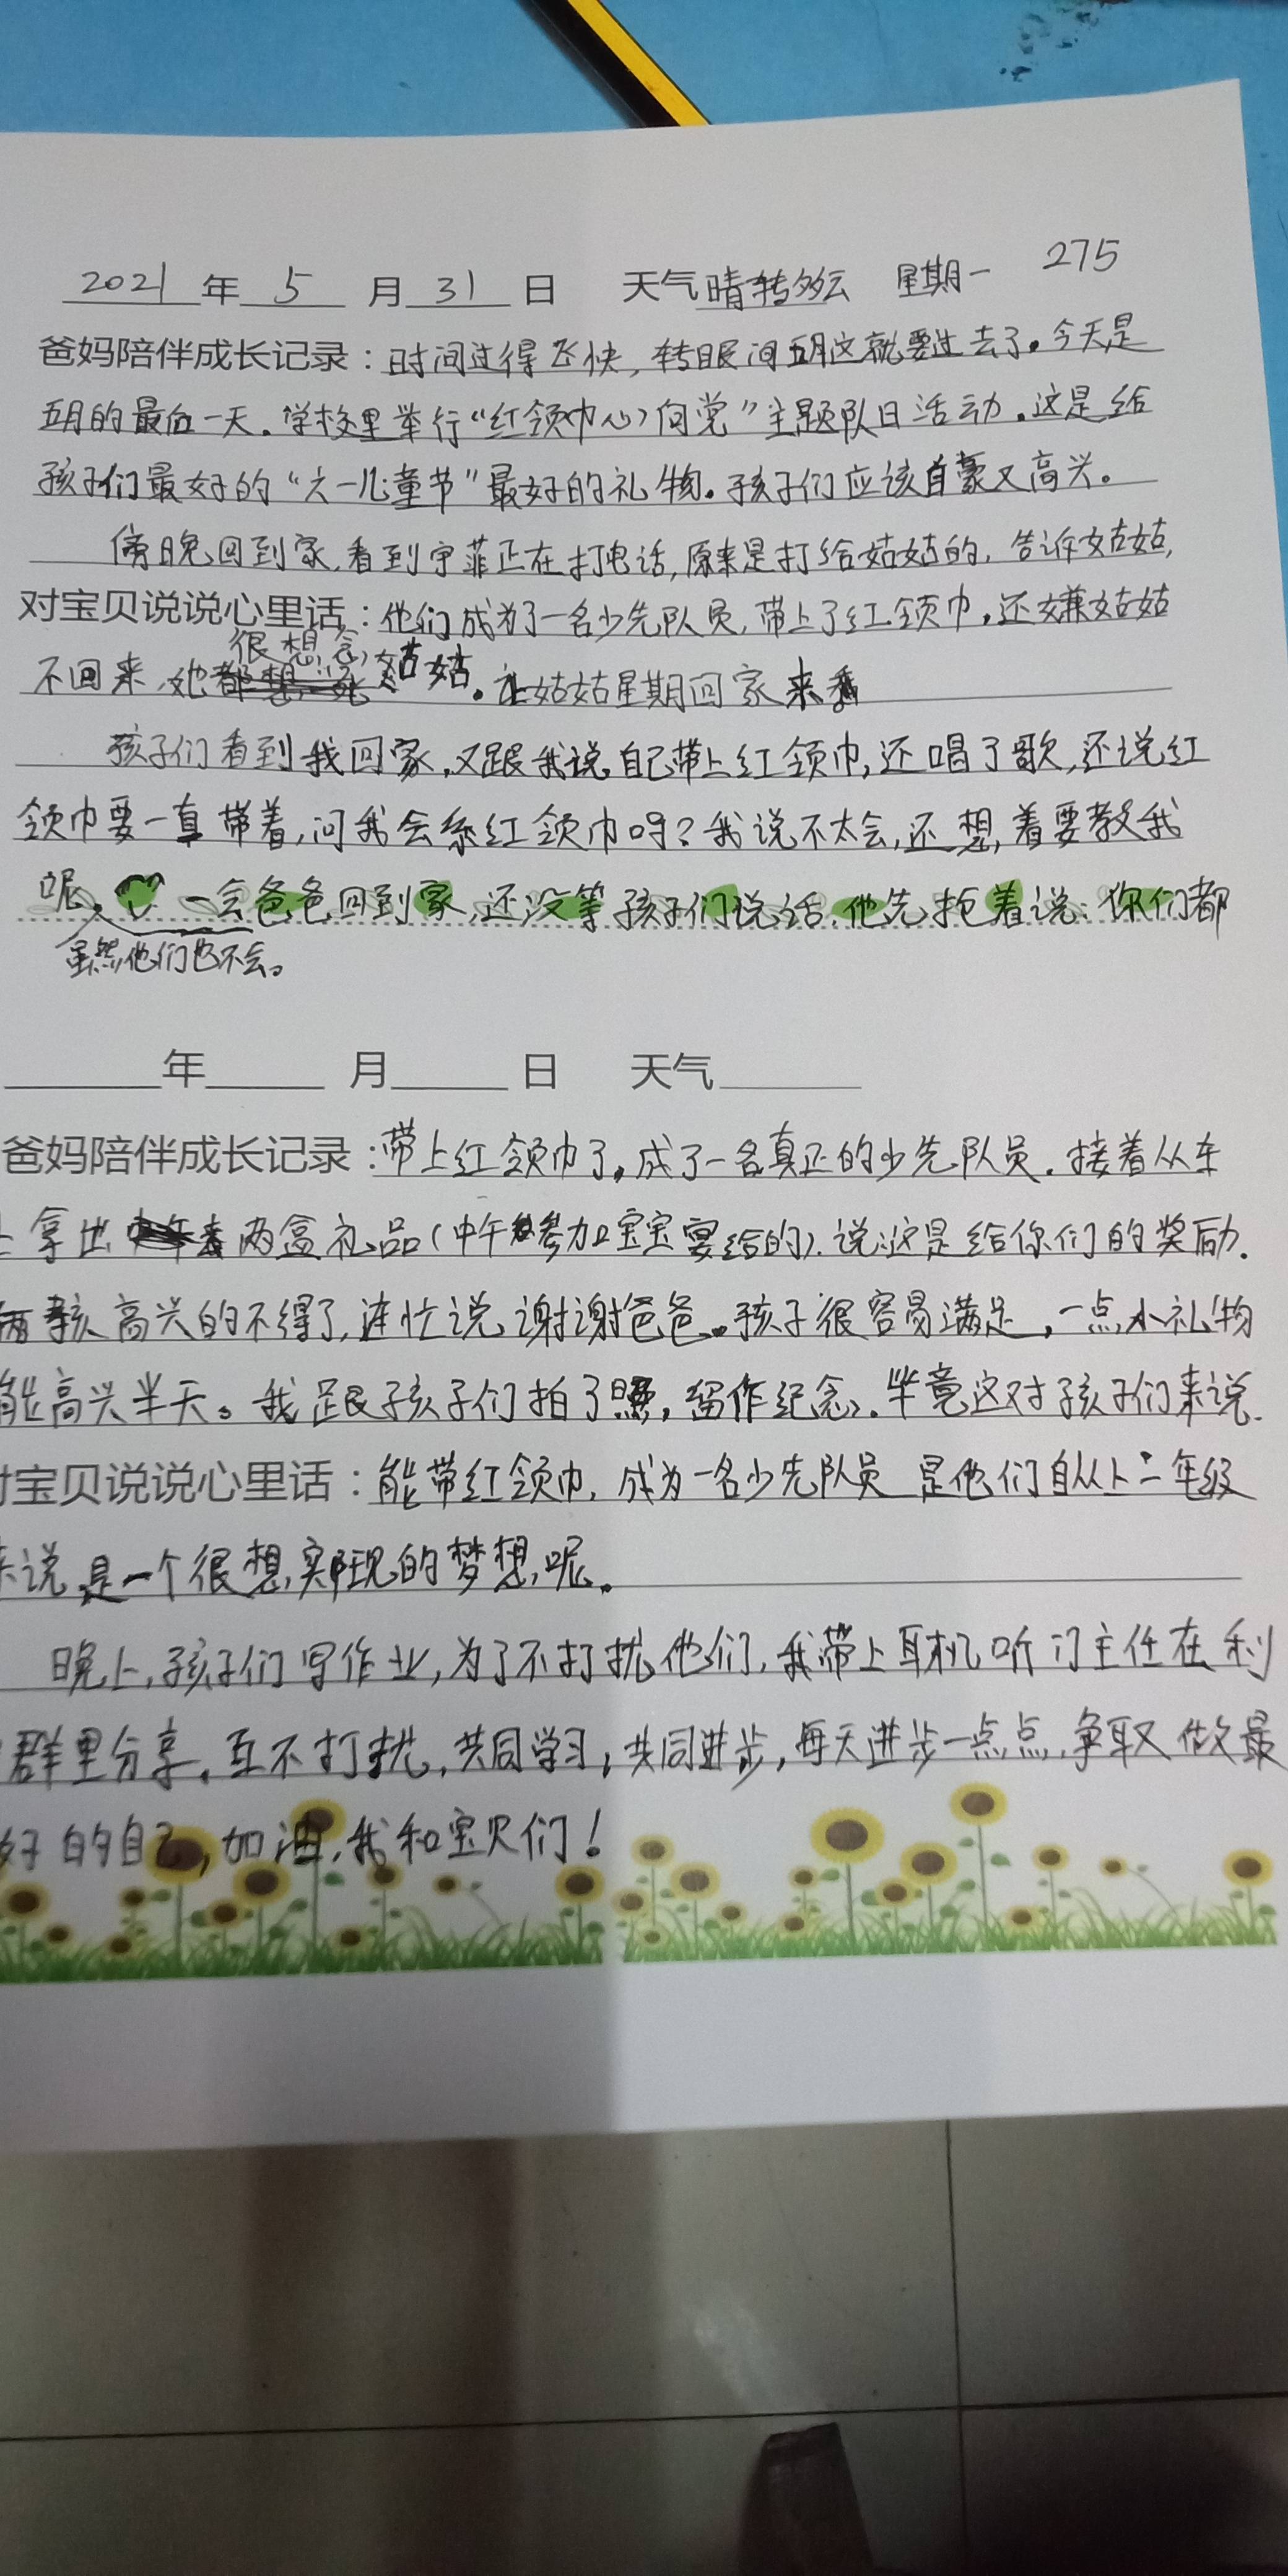 2021年5月31日 天气晴转多云 星期一 275
爸妈陪伴成长记录：时间过得飞快，转眼间五月这就要过去了。今天是
五月的最后一天。学校里举行“红领巾心向党”主题队日活动。这是给
孩子们最好的“六一儿童节”最好的礼物。孩子们应该自豪又高兴。
傍晚回到家，看到宇菲正在打电话，原来是打给姑姑的，告诉姑姑，
对宝贝说说心里话：他们成为了一名少先队员，带上了红领巾，还嫌姑姑
很想念
不回来，她姑姑。让姑姑星期回家来看
孩子们看到我回家，又跟我说自己带上红领巾，还唱了歌，还说红
领巾要一直带着，问我会系红领巾吗？我说不太会，还想着要教我
呢。一会爸爸回到家，还没等孩子们说话，他先抢着说：你们都
虽然他们也不会。
年 月 日 天气
爸妈陪伴成长记录：带上红领巾了，成了一名真正的少先队员。接着从车
上拿出两盒礼品（中午参加宝宝宴给的），说这是给你们的奖励。
两孩高兴的不得了，连忙说谢谢爸爸。孩子很容易满足，一点小礼物
能高兴半天。我跟孩子们拍了照，留作纪念。毕竟这对孩子们来说.
对宝贝说说心里话：能带红领巾，成为一名少先队员是他们自从上二年级
来说是一个很想实现的梦想呢。
晚上，孩子们写作业，为了不打扰他们，我带上耳机听门主任在利
群里分享。互不打扰，共同学习，共同进步，每天进步一点点，争取做最
好的自己，加油，我和宝贝们！